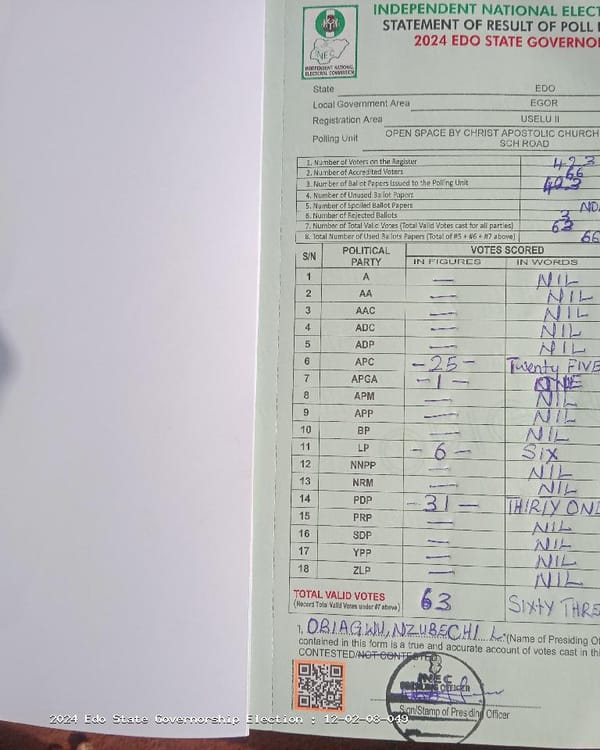 INDEPENDENT NATIONAL ELEC
STATEMENT OF RESULT OF POLL
2024 EDO STATE GOVERNO
INEC
INDEPENDENT NATIONAL
ELECTORAL COMMISSION
State EDO
Local Government Area EGOR
Registration Area USELU II
Polling Unit OPEN SPACE BY CHRIST APOSTOLIC CHURCH
SCH ROAD
1. Number of Voters on the Register 423
2. Number of Accredited Voters 66
3. Number of Ballot Papers Issued to the Polling Unit 423
4. Number of Unused Ballot Papers
5. Number of Spoiled Ballot Papers
6. Number of Rejected Ballots 3
7. Number of Total Valid Votes (Total Valid Votes cast for all parties) 63
8. Total Number of Used Ballots Papers (Total of #5 + #6 + #7 above) 66
S/N POLITICAL PARTY VOTES SCORED
IN FIGURES IN WORDS
1 A — NIL
2 AA — NIL
3 AAC — NIL
4 ADC — NIL
5 ADP — NIL
6 APC -25- Twenty FIVE
7 APGA -1- ONE
8 APM — NIL
9 APP — NIL
10 BP — NIL
11 LP -6- SIX
12 NNPP — NIL
13 NRM — NIL
14 PDP -31- THIRTY ONE
15 PRP — NIL
16 SDP — NIL
17 YPP — NIL
18 ZLP — NIL
TOTAL VALID VOTES 63 SIXTY THRE
(Record Total Valid Votes under #7 above)
I, OBIAGWU, NZUBECHI L. (Name of Presiding Of
contained in this form is a true and accurate account of votes cast in thi
CONTESTED/NOT CONTESTED
INEC
PRESIDING OFFICER
Sign/Stamp of Presiding Officer
2024 Edo State Governorship Election : 12-02-08-049